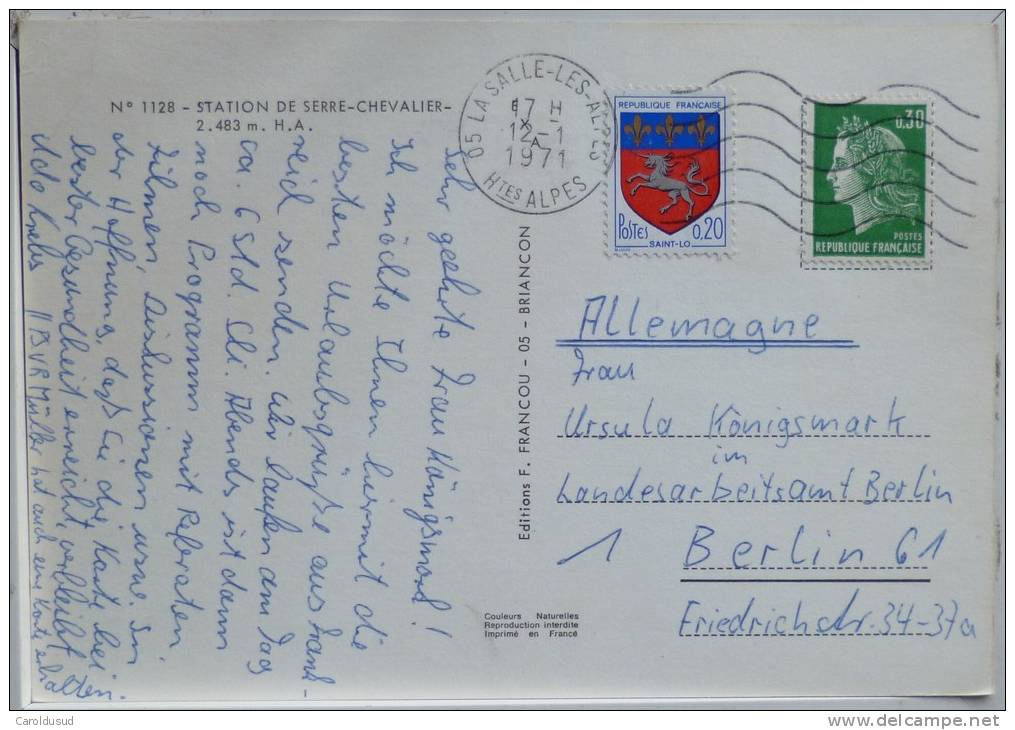 N° 1128 - STATION DE SERRE-CHEVALIER-
2.483 m. H.A.
05 LA SALLE-LES-ALPES
17 H
12-1
1971
A
HTES ALPES
REPUBLIQUE FRANÇAISE
POSTES 0,20
SAINT-LO
0,30
POSTES
REPUBLIQUE FRANÇAISE
Sehr geehrte Frau Königsmark!
Ich möchte Ihnen hiermit die
besten Urlaubsgrüße aus Frank-
reich senden. Wir laufen am Tag
ca. 6 Std. Ski. Abends ist dann
noch Programm mit Referaten,
Filmen, Diskussionen usw. In
der Hoffnung, daß Sie die Karte bei
bester Gesundheit erreicht, verbleibt
Udo
Müller hat auch eine Karte erhalten.
Editions F. FRANCOU - 05 - BRIANCON
Couleurs Naturelles
Reproduction interdite
Imprimé en France
Allemagne
Frau
Ursula Königsmark
im
Landesarbeitsamt Berlin
1 Berlin 61
Friedrichstr. 34-37a
Caroldusud
delcampe.net